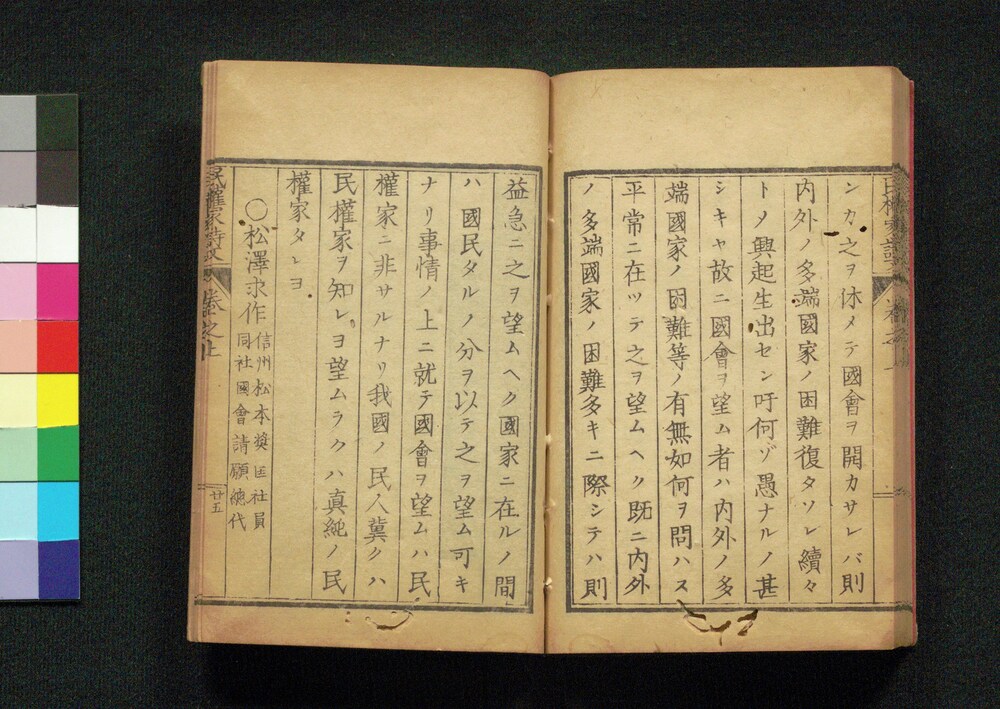 ンカ之ヲ休メテ國會ヲ開カサレバ則
内外ノ多端國家ノ困難復タソレ續々
トノ興起生出セン吁何ゾ愚ナルノ甚
シキヤ故ニ國會ヲ望ム者ハ内外ノ多
端國家ノ困難等ノ有無如何ヲ問ハス
平常ニ在ツテ之ヲ望ムヘク既ニ内外
ノ多端國家ノ困難多キニ際シテハ則
益急ニ之ヲ望ムヘク國家ニ在ルノ間
ハ國民タルノ分ヲ以テ之ヲ望ム可キ
ナリ事情ノ上ニ就テ國會ヲ望ムハ民
權家ニ非サルナリ我國ノ民人冀クハ
民權家ヲ知レヨ望ムラクハ真純ノ民
權家タレヨ
〇松澤求作
信州松本奬匡社員
同社國會請願總代
卷之上
廿五